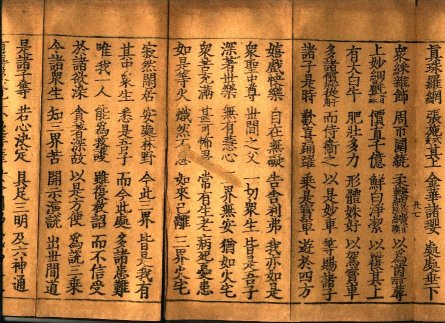 真珠羅網 張施其上 金華諸瓔 處處垂下
衆綵雜飾 周帀圍繞 柔軟繒纊 以爲茵蓐
上妙細㲲 價直千億 鮮白淨潔 以覆其上
有大白牛 肥壯多力 形體姝好 以駕寶車
多諸儐從 而侍衛之 以是妙車 等賜諸子
諸子是時 歡喜踊躍 乘是寶車 遊於四方
嬉戲快樂 自在無礙 告舍利弗 我亦如是
衆聖中尊 世間之父 一切衆生 皆是吾子
深著世樂 無有慧心 三界無安 猶如火宅
衆苦充滿 甚可怖畏 常有生老 病死憂患
如是等火 熾然不息 如來已離 三界火宅
寂然閑居 安處林野 今此三界 皆是我有
其中衆生 悉是吾子 而今此處 多諸患難
唯我一人 能爲救護 雖復教詔 而不信受
於諸欲染 貪著深故 以是方便 爲說三乘
令諸衆生 知三界苦 開示演說 出世間道
是諸子等 若心決定 具足三明 及六神通